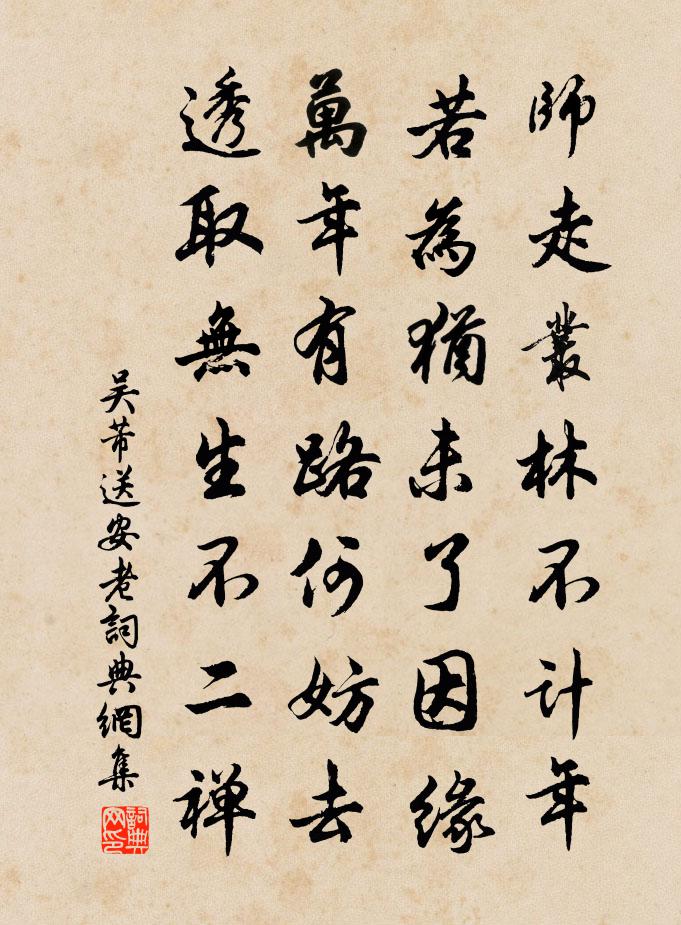 師走叢林不計年
若為猶未了因緣
萬年有路何妨去
透取無生不二禅
吴芾送安老詞典網集
詞典网印